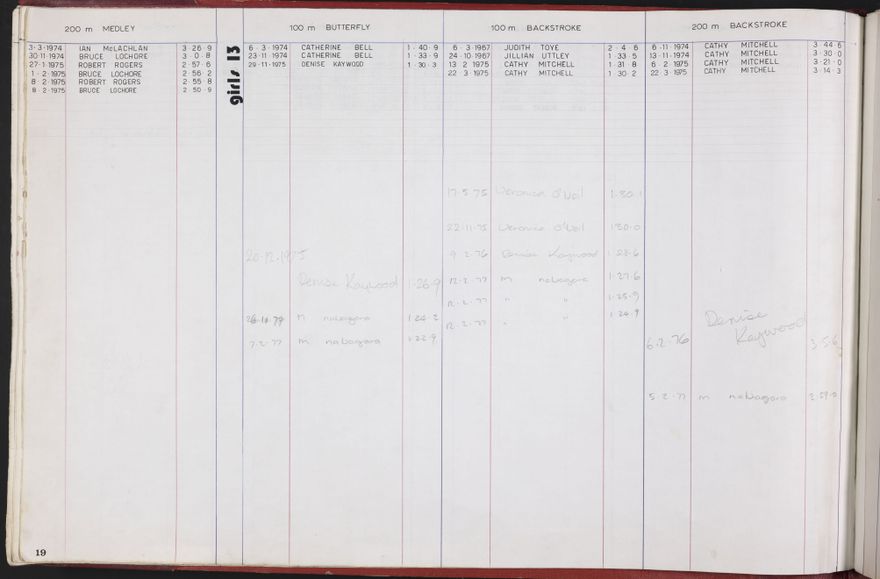 200 m MEDLEY
3·3·1974 IAN McLACHLAN 3 26 9
30·11·1974 BRUCE LOCHORE 3 0 8
27·1·1975 ROBERT ROGERS 2 57 6
1·2·1975 BRUCE LOCHORE 2 56 2
8·2·1975 ROBERT ROGERS 2 55 8
8·2·1975 BRUCE LOCHORE 2 50 9
girls 13
100 m BUTTERFLY
6·3·1974 CATHERINE BELL 1·40·9
23·11·1974 CATHERINE BELL 1·33·9
29·11·1975 DENISE KAYWOOD 1·30·3
20·12·1975
Denise Kaywood 1·26·9
n nabagara 1·24·2
7·2·77 m nabagara 1·22·9
100 m BACKSTROKE
6 3·1967 JUDITH TOYE 2·4·6
24·10·1967 JILLIAN UTTLEY 1·33·5
13 2 1975 CATHY MITCHELL 1·31·8
22 3 1975 CATHY MITCHELL 1·30·2
17·5·75 Veronica O'Neil 1·30·1
22·11·75 Veronica O'Neil 1·30·0
9·2·76 Denise Kaywood
12·2·77 m nabagara 1·27·6
12·2·77 " " 1·25·9
12·2·77 " " 1·24·9
200 m BACKSTROKE
6·11·1974 CATHY MITCHELL 3·44·6
13·11·1974 CATHY MITCHELL 3·30·0
6·2·1975 CATHY MITCHELL 3·21·0
22·3·1975 CATHY MITCHELL 3·14·3
Denise
6·2·76 Kaywood 3·5·6
5·2·77 m nabagara 2·59·0
19